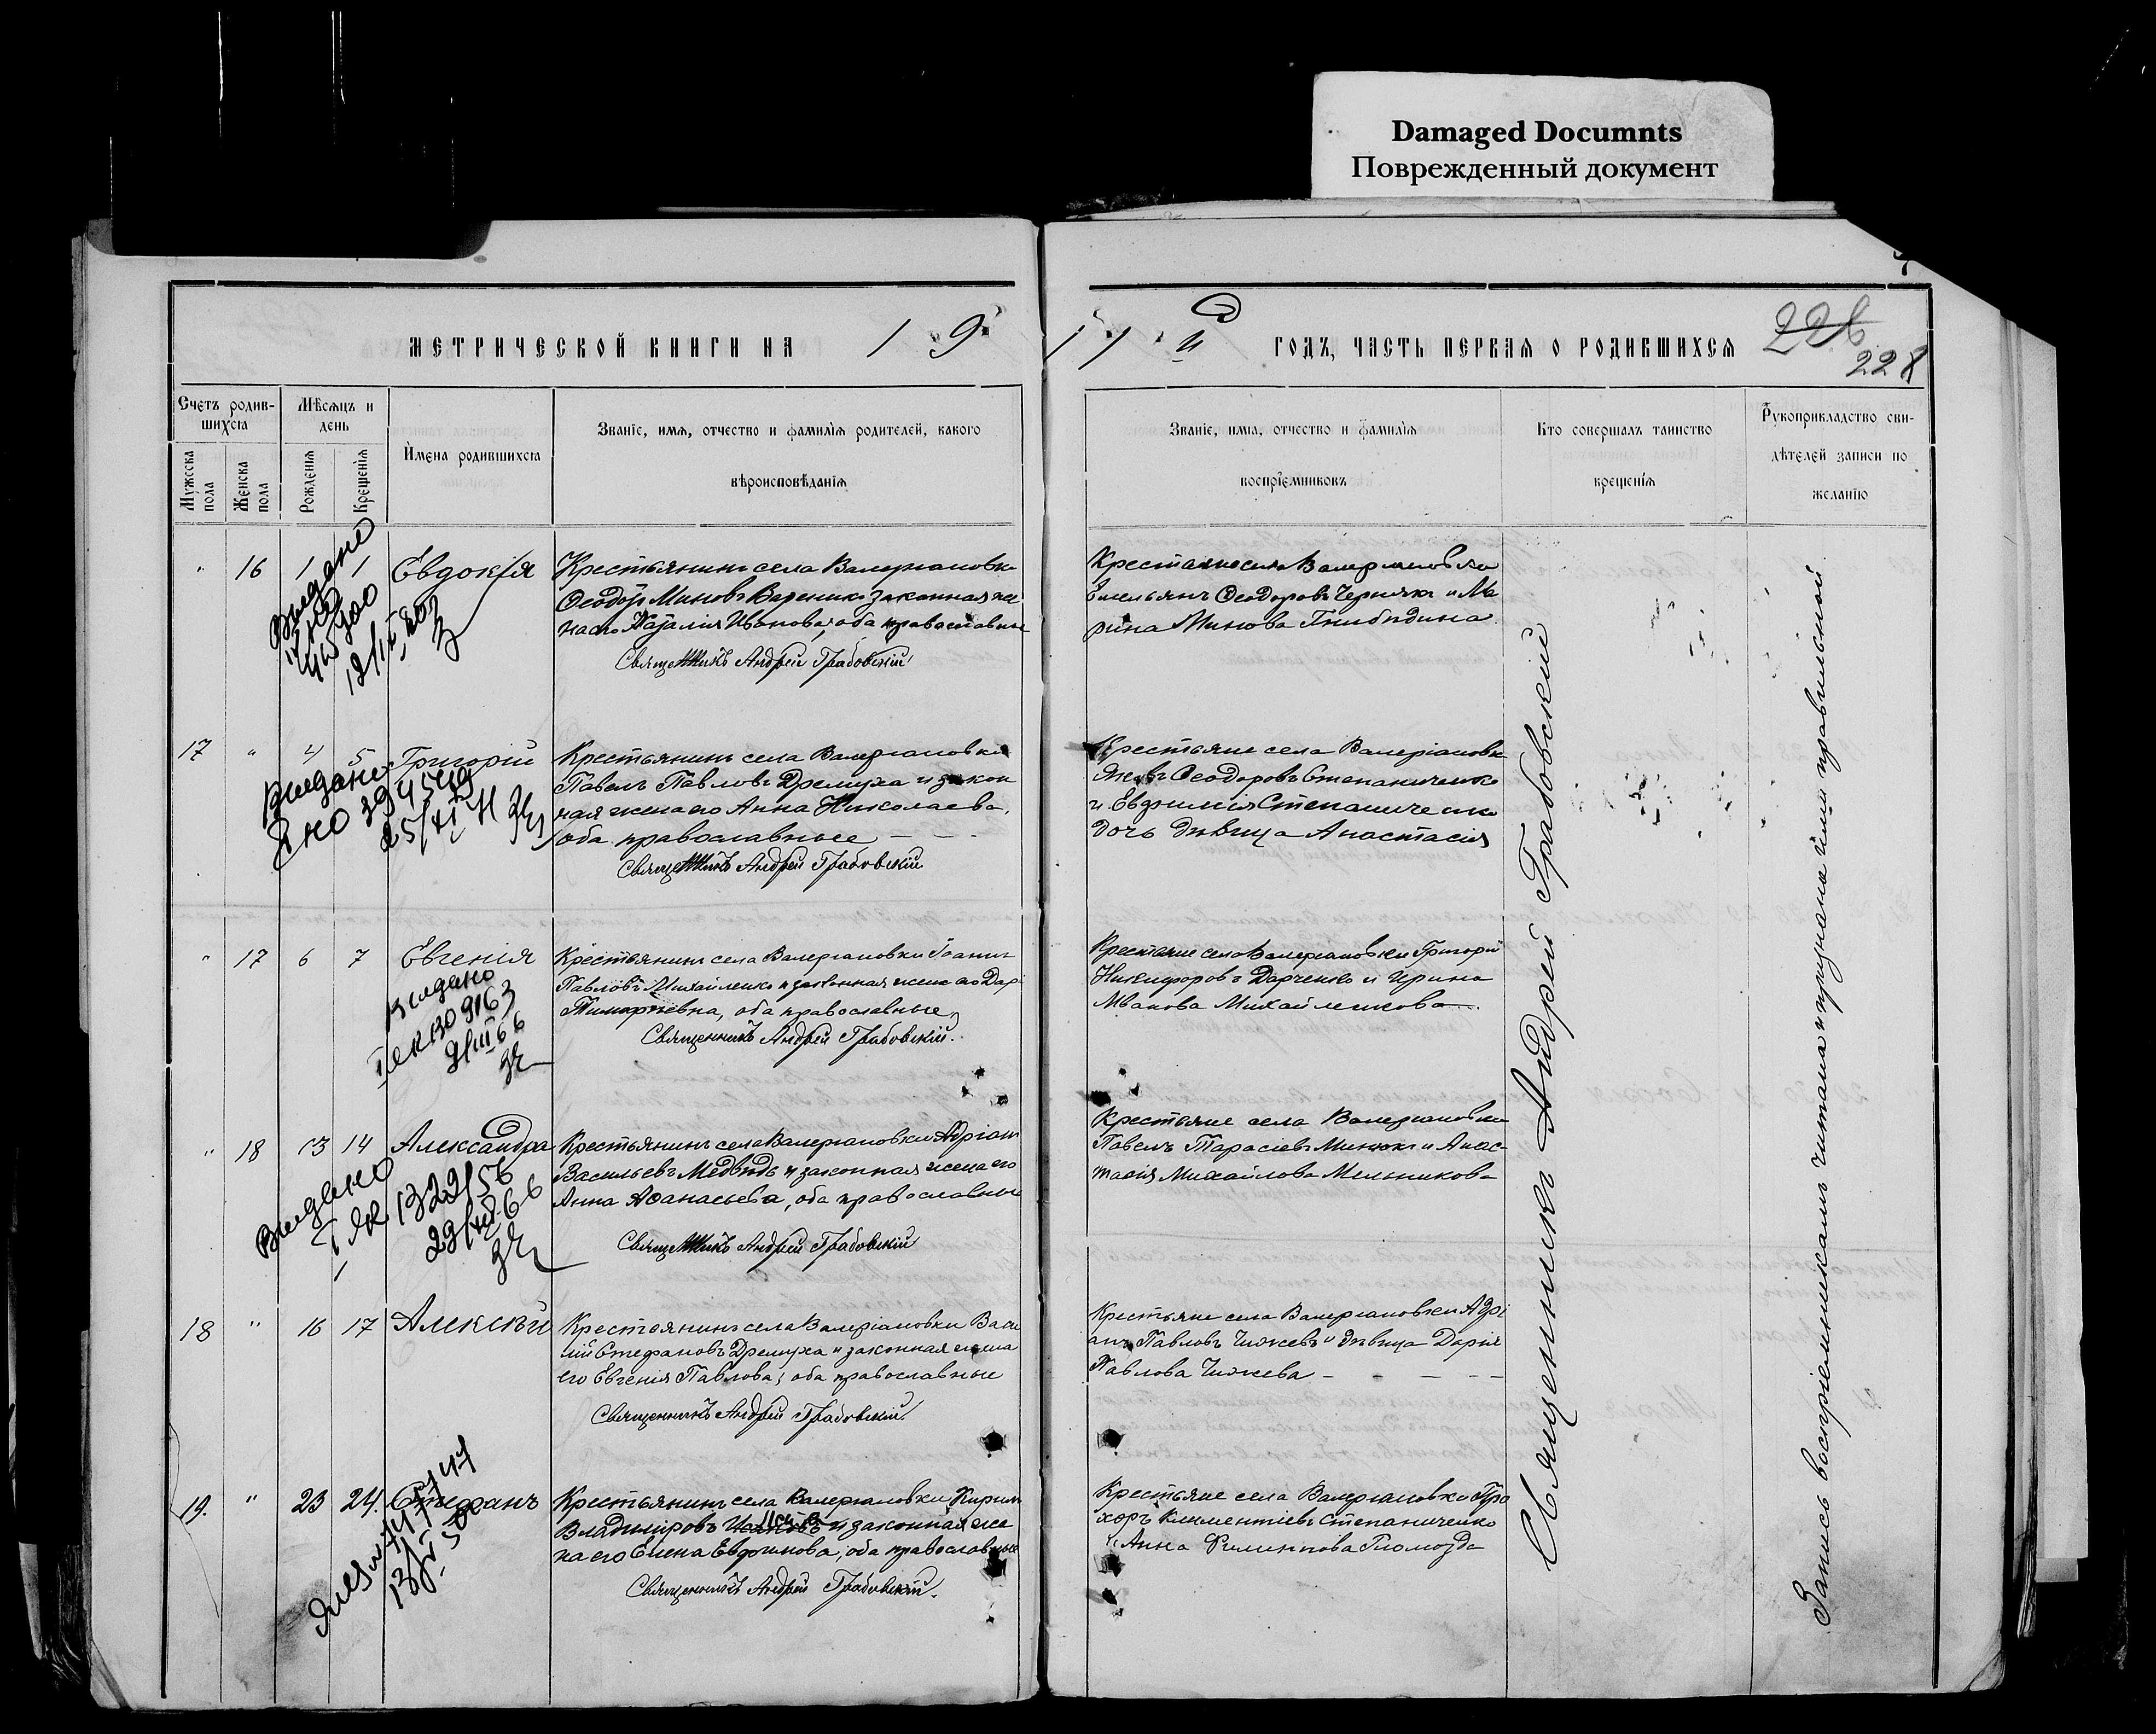 Damaged Documnts
Поврежденный документ
МЕТРИЧЕСКОЙ КНИГИ НА 19
11 й ГОДЪ, ЧАСТЬ ПЕРВАЯ О РОДИВШИХСЯ
228
Счетъ родив-
шихся
Мѣсяцъ и
день
Имена родившихся
Званіе, имя, отчество и фамилія родителей, какого
вѣроисповѣданія
Мужеска пола
Женска пола
Рожденія
Крещенія
Званіе, имя, отчество и фамилія
воспріемниковъ
Кто совершалъ таинство
крещенія
Рукоприкладство сви-
дѣтелей записи по
желанію
" 16 1 1 Евдокія
Крестьянинъ села Валеріановки
Ѳеодоръ Миновъ законная же
на его Наталія Иванова, оба православные
Священникъ Андрей Грабовскій
Крестьяне села Валеріановки
Емельянъ Ѳеодоровъ Чернякъ и Ма
рина Минова
Видано
17 " 4 5 Григорій
Крестьянинъ села Валеріановки
Павелъ Павловъ Дремуха и закон
ная жена его Анна Николаева,
оба православные
Священникъ Андрей Грабовскій
Крестьяне села Валеріановки
Яковъ Ѳеодоровъ Степаниченко
и Евфимія Степаниченко
дочь дѣвица Анастасія
Видано
" 17 6 7 Евгенія
Крестьянинъ села Валеріановки Іоаннъ
Павловъ Михайленко и законная жена его Дарія
Тимофѣевна, оба православные
Священникъ Андрей Грабовскій.
Крестьяне села Валеріановки Григорій
Никифоровъ и Ирина
Иванова Михайленкова
Видано
" 18 13 14 Александра
Крестьянинъ села Валеріановки Адріанъ
Васильевъ Медвѣдь и законная жена его
Анна Аѳанасьева, оба православные
Священникъ Андрей Грабовскій
Крестьяне села Валеріановки
Павелъ Тарасіевъ и Анас-
тасія Михайлова Мельникова
Видано
18 " 16 17 Алексѣй
Крестьянинъ села Валеріановки Васи
лій Стефановъ Дремуха и законная жена
его Евгенія Павлова, оба православные
Священникъ Андрей Грабовскій.
Крестьяне села Валеріановки Адрі
анъ Павловъ Чижевъ и дѣвица Дарія
Павлова Чижева
19. " 23 24. Стефанъ
Крестьянинъ села Валеріановки Кириллъ
Владиміровъ и законная же
на его Елена Евфимова, оба православные
Священникъ Андрей Грабовскій.
Крестьяне села Валеріановки Про
хоръ Климентіевъ Степаниченко
и Анна Филиппова
Священникъ Андрей Грабовский
Запись воспріемникамъ читана и признана ими правильной.